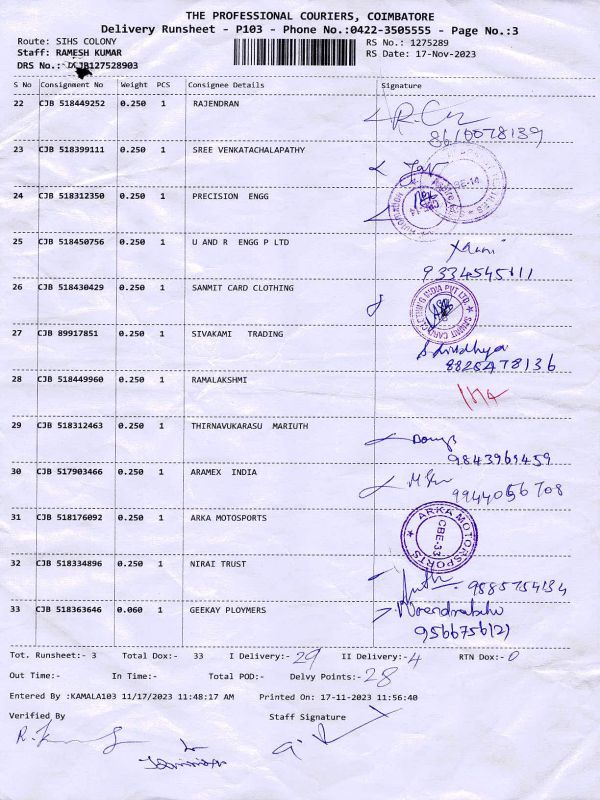 THE PROFESSIONAL COURIERS, COIMBATORE
Delivery Runsheet - P103 - Phone No.:0422-3505555 - Page No.:3
Route: SIHS COLONY RS No.: 1275289
Staff: RAMESH KUMAR RS Date: 17-Nov-2023
DRS No.: CJB127528903
S No Consignment No Weight PCS Consignee Details Signature
22 CJB 518449252 0.250 1 RAJENDRAN
8610078139
23 CJB 518399111 0.250 1 SREE VENKATACHALAPATHY
24 CJB 518312350 0.250 1 PRECISION ENGG
25 CJB 518450756 0.250 1 U AND R ENGG P LTD
9334545111
26 CJB 518430429 0.250 1 SANMIT CARD CLOTHING
27 CJB 89917851 0.250 1 SIVAKAMI TRADING
8826478136
28 CJB 518449960 0.250 1 RAMALAKSHMI
29 CJB 518312463 0.250 1 THIRNAVUKARASU MARIUTH
9843969459
30 CJB 517903466 0.250 1 ARAMEX INDIA
9944056708
31 CJB 518176092 0.250 1 ARKA MOTOSPORTS
ARKA MOTORSPORTS
CBE-33
32 CJB 518334896 0.250 1 NIRAI TRUST
9885754134
33 CJB 518363646 0.060 1 GEEKAY PLOYMERS
Tot. Runsheet:- 3 Total Dox:- 33 I Delivery:- 29 II Delivery:- 4 RTN Dox:- 0
Out Time:- In Time:- Total POD:- Delvy Points:- 28
Entered By :KAMALA103 11/17/2023 11:48:17 AM Printed On: 17-11-2023 11:56:40
Verified By Staff Signature